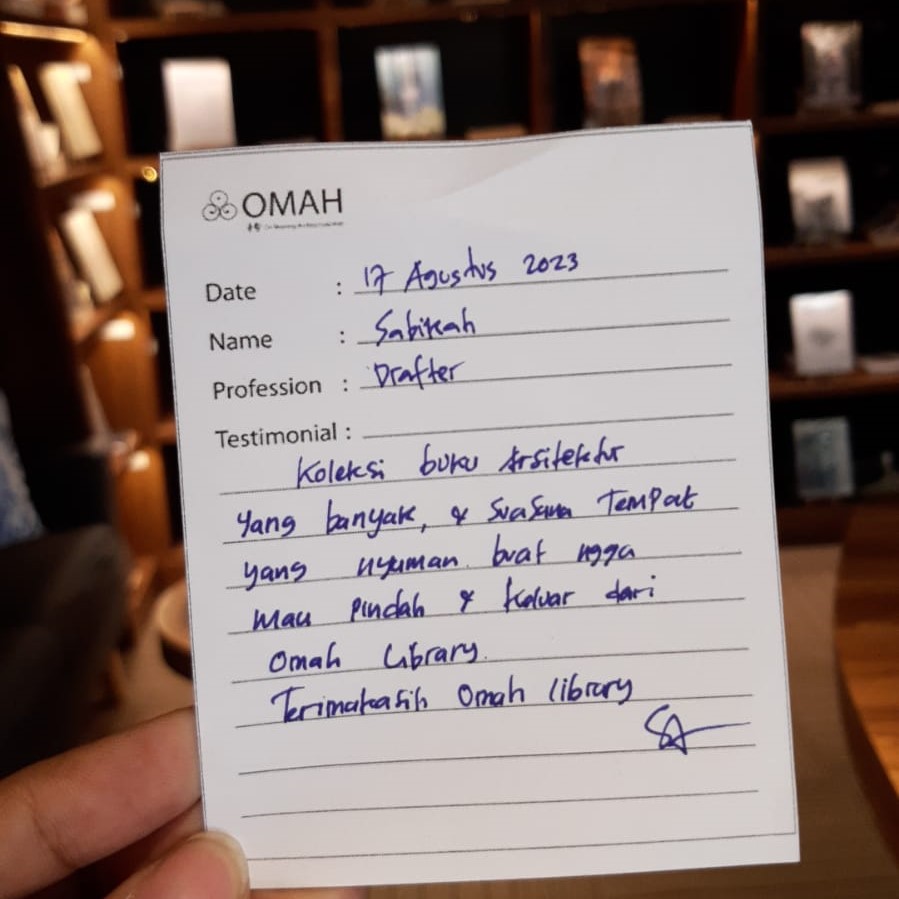 OMAH
Date : 17 Agustus 2023
Name : Sabikah
Profession : Drafter
Testimonial :
Koleksi buku Arsitektur
Yang banyak, & Suasana Tempat
yang nyuman buat ngga
mau pindah & keluar dari
Omah Library.
Terimakasih Omah library